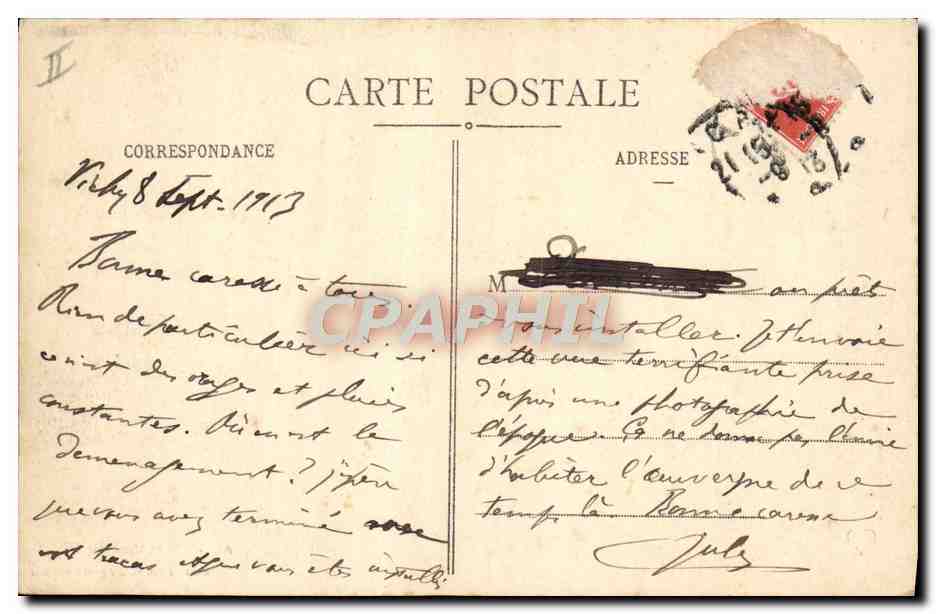 II
CARTE POSTALE
CORRESPONDANCE
ADRESSE
Vichy 8 Sept. 1913
Bonne caresse à tous.
Rien de particulier ici si
ce n'est des orages et pluies
constantes. Où en est le
demenagement? j'espère
que vous avez terminé
vos tracas et que vous êtes installés
M
ou prêts
à vous installer. Je t'envoie
cette vue terrifiante prise
d'après une photographie de
l'époque. Ça ne donne pas l'envie
d'habiter l'auvergne de ce
temps là. Bonne caresse
Jules
CPAPHIL